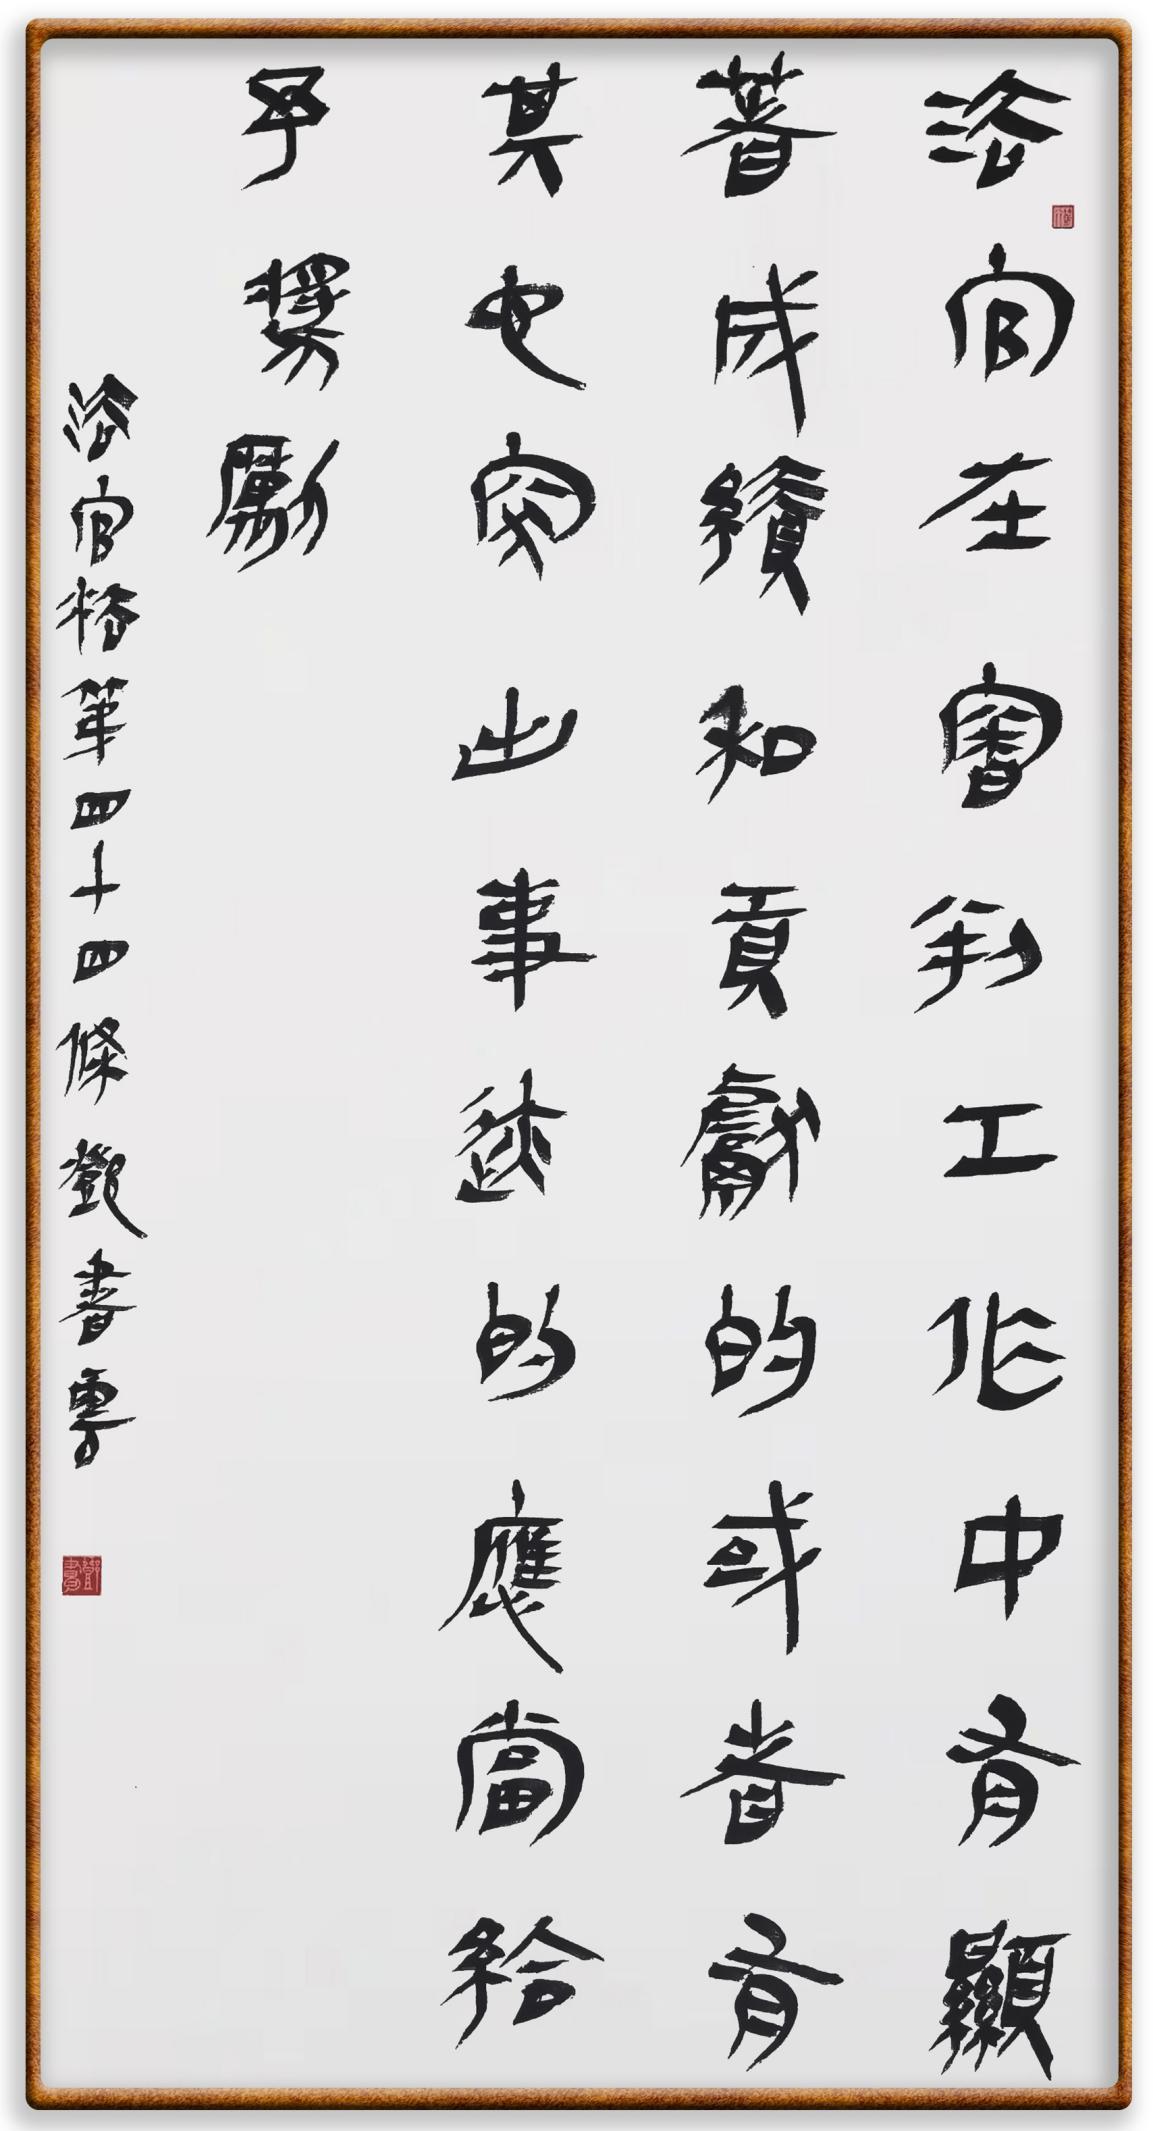 法官在審判工作中有顯
著成績和貢獻的或者有
其也突出事迹的應當給
予獎勵
法官法第四十四條 鄧書
鄧書